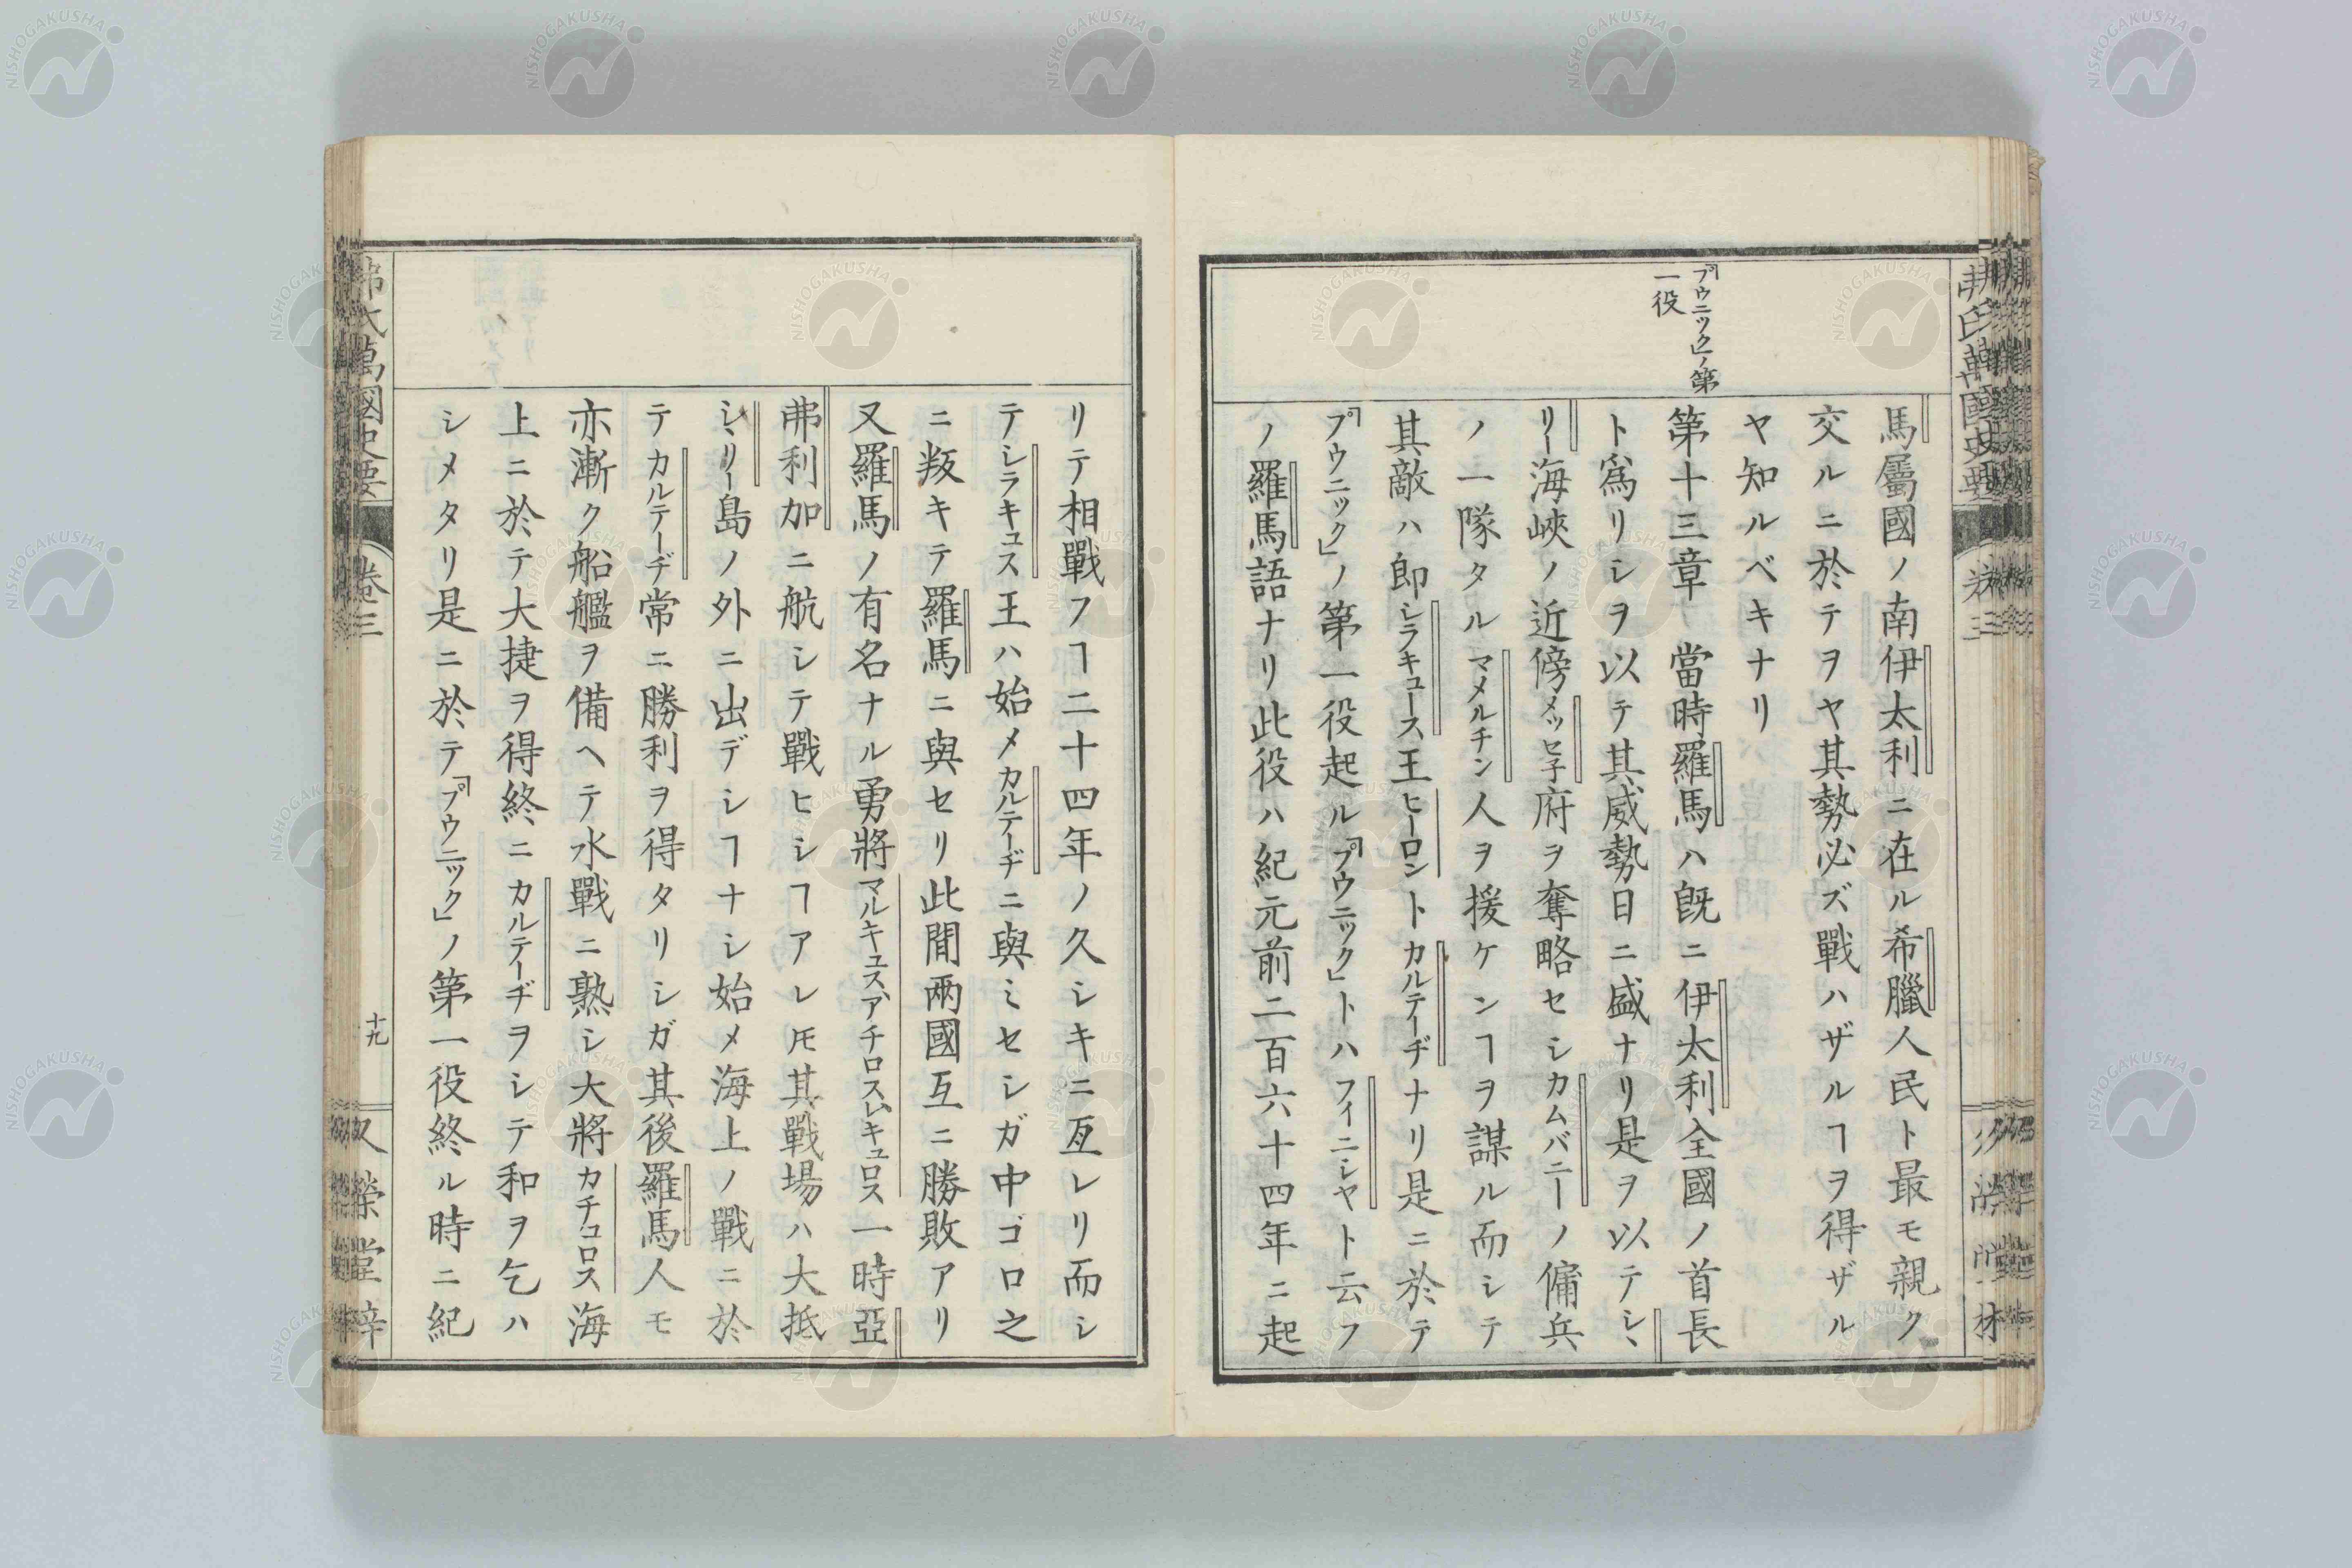 プウニックノ第
一役
馬屬國ノ南伊太利ニ在ル希臘人民ト最モ親ク
交ルニ於テヲヤ其勢必ズ戰ハザルヿヲ得ザル
ヤ知ルベキナリ
第十三章 當時羅馬ハ既ニ伊太利全國ノ首長
ト爲リシヲ以テ其威勢日ニ盛ナリ是ヲ以テシヽ
リー海峽ノ近傍メッセ子府ヲ奪略セシカムバニーノ傭兵
ノ一隊タルマメルチン人ヲ援ケンヿヲ謀ル而シテ
其敵ハ即シラキュース王ヒーロントカルテーヂナリ是ニ於テ
「プウニック」ノ第一役起ル「プウニック」トハフイニシヤト云フ
ノ羅馬語ナリ此役ハ紀元前二百六十四年ニ起
リテ相戰フヿ二十四年ノ久シキニ亙レリ而シ
テシラキュス王ハ始メカルテーヂニ與ミセシガ中ゴロ之
ニ叛キテ羅馬ニ與セリ此間兩國互ニ勝敗アリ
又羅馬ノ有名ナル勇將マルキュス、アチロス、レキュロス一時亞
弗利加ニ航シテ戰ヒシヿアレ𪜈其戰場ハ大抵
シヽリー島ノ外ニ出デシヿナシ始メ海上ノ戰ニ於
テカルテーヂ常ニ勝利ヲ得タリシガ其後羅馬人モ
亦漸ク船艦ヲ備ヘテ水戰ニ熟シ大將カチュロス海
上ニ於テ大捷ヲ得終ニカルテーヂヲシテ和ヲ乞ハ
シメタリ是ニ於テ「プウニック」ノ第一役終ル時ニ紀
弗氏萬國史要
卷三
十九